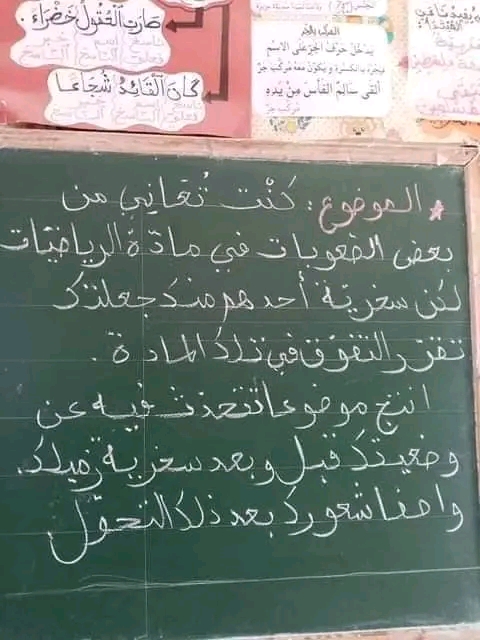 صَارَتِ الْحُقُولُ خَضْرَاءَ.
كَانَ الْقَائِدُ شُجَاعًا
المركب بالجر
يدخل حرف الجر على الاسم
فيجره بالكسرة و يكون معه مركب جر
ألقى سالم الفأس من يده
مركب جر
* الموضوع: كُنْت تُعَاني من
بعض الصعوبات في مادّة الرياضيّات
لكن سخرية أحدهم منك جعلتك
تقرّر التفوّق في تلك المادة.
انتج موضوعا تتحدث فيه عن
وضعيتك قبل وبعد سخرية زميلك.
واصفا شعورك بعد ذلك التحوّل